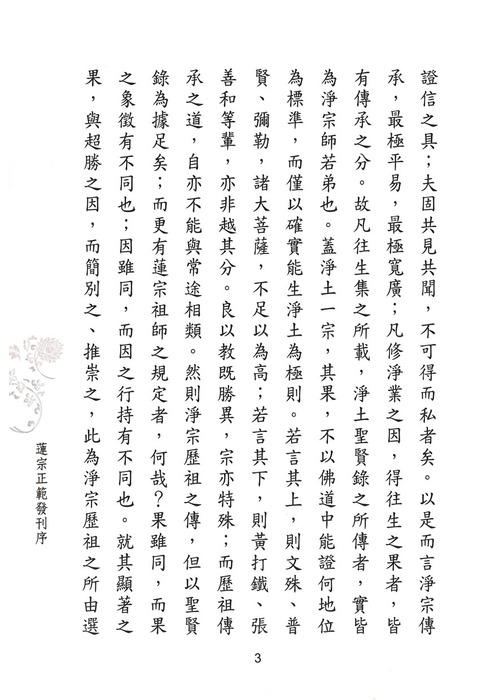 證信之具；夫固共見共聞，不可得而私者矣。以是而言淨宗傳
承，最極平易，最極寬廣；凡修淨業之因，得往生之果者，皆
有傳承之分。故凡往生集之所載，淨土聖賢錄之所傳者，實皆
為淨宗師若弟也。蓋淨土一宗，其果，不以佛道中能證何地位
為標準，而僅以確實能生淨土為極則。若言其上，則文殊、普
賢、彌勒，諸大菩薩，不足以為高；若言其下，則黃打鐵、張
善和等輩，亦非越其分。良以教既勝異，宗亦特殊；而歷祖傳
承之道，自亦不能與常途相類。然則淨宗歷祖之傳，但以聖賢
錄為據足矣；而更有蓮宗祖師之規定者，何哉？果雖同，而果
之象徵有不同也；因雖同，而因之行持有不同也。就其顯著之
果，與超勝之因，而簡別之、推崇之，此為淨宗歷祖之所由選
蓮宗正範發刊序
3